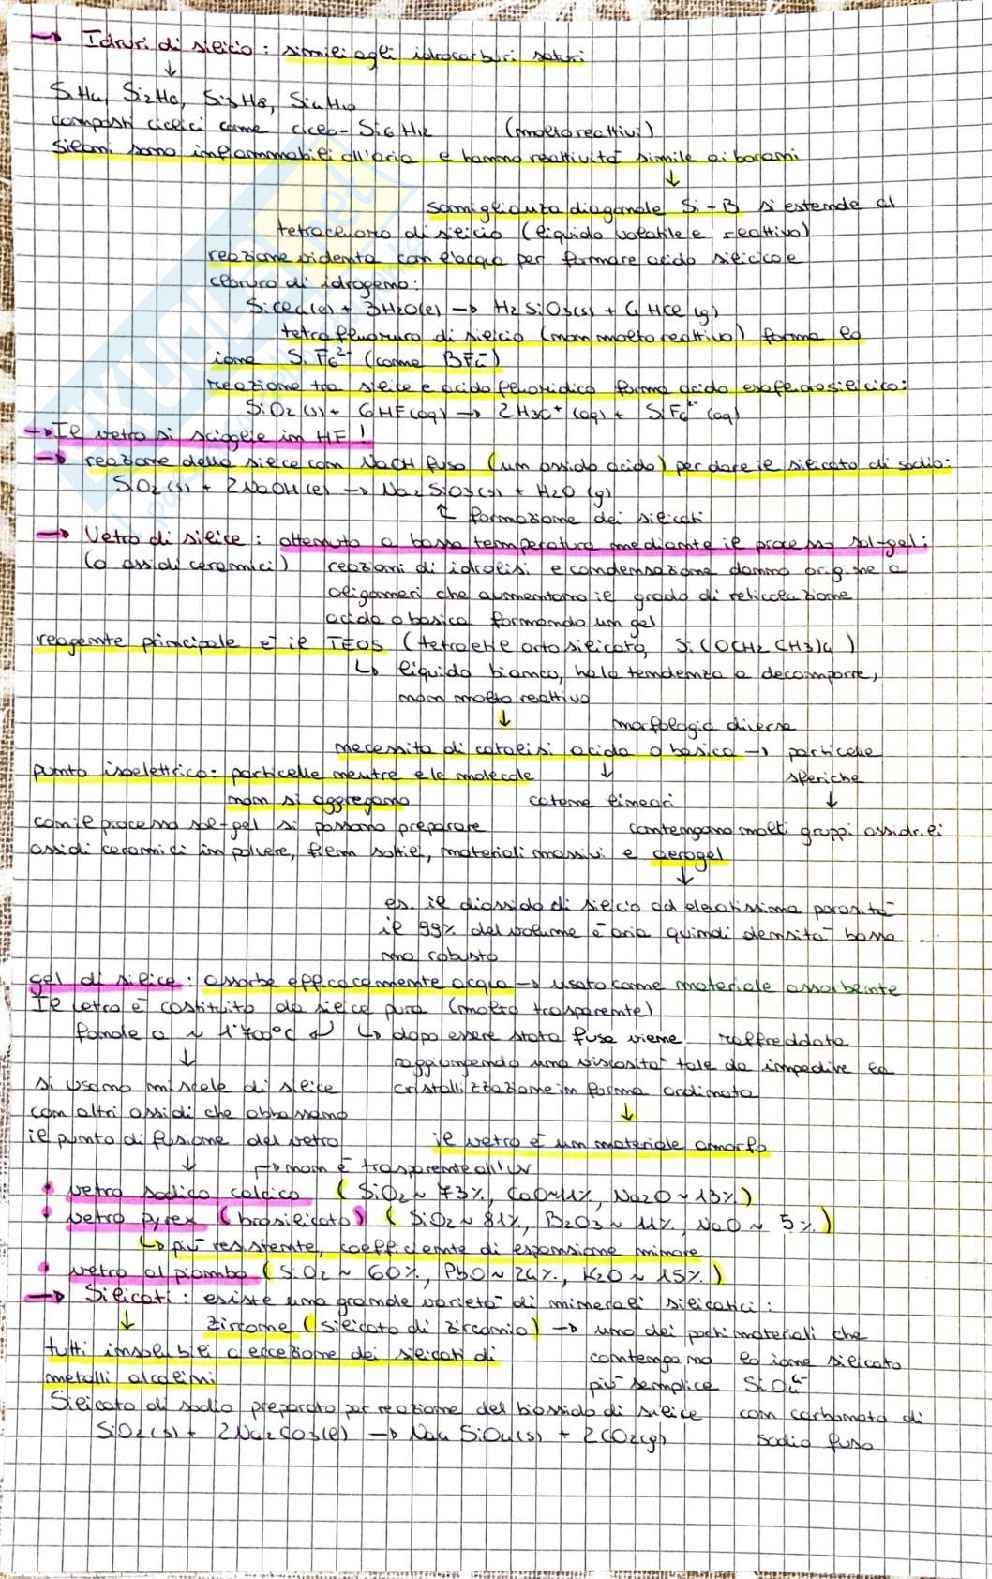 → Idruri di silicio : simili agli idrocarburi saturi
↓
SiH4, Si2H6, Si3H8, Si4H10
composti ciclici come ciclo-Si6H12 (molto reattivi)
Silani sono infiammabili all'aria e hanno reattività simile ai borani
↓
somiglianza diagonale Si-B si estende al
tetracloruro di silicio (liquido volatile e reattivo)
reazione violenta con l'acqua per formare acido silicico e
cloruro di idrogeno:
SiCl4(l) + 3H2O(l) → H2SiO3(s) + 4HCl(g)
tetrafluoruro di silicio (non molto reattivo) forma lo
ione SiF6²⁻ (come BF4⁻)
reazione tra silice e acido fluoridico forma acido esafluorosilicico:
SiO2(s) + 6HF(aq) → 2H3O⁺(aq) + SiF6²⁻(aq)
→ Il vetro si scioglie in HF!
→ reazione della silice con NaOH fuso (un ossido acido) per dare il silicato di sodio:
SiO2(s) + 2NaOH(l) → Na2SiO3(s) + H2O(g)
↑ formazione dei silicati
→ Vetro di silice : ottenuto a bassa temperatura mediante il processo sol-gel:
(o ossidi ceramici) reazioni di idrolisi e condensazione danno origine a
oligomeri che aumentano il grado di reticolazione
acida o basica formando un gel
reagente principale è il TEOS (tetraetil ortosilicato, Si(OCH2CH3)4)
↳ liquido bianco, ha la tendenza a decomporre,
non molto reattivo
↓ morfologia diverse
necessita di catalisi acida o basica → particelle
punto isoelettrico: particelle neutre e le molecole ↓ sferiche
non si aggregano catene lineari ↓
con il processo sol-gel si possono preparare contengono molti gruppi ossidrili
ossidi ceramici in polvere, film sottili, materiali massivi e aerogel
↓
es. il diossido di silicio ad elevatissima porosità
il 99% del volume è aria quindi densità bassa
ma robusto
gel di silice : assorbe efficacemente acqua → usato come materiale assorbente
Il vetro è costituito da silice pura (molto trasparente)
fonde a ~ 1700°C ↵ ↳ dopo essere stata fusa viene raffreddata
↓ raggiungendo una viscosità tale da impedire la
si usano miscele di silice cristallizzazione in forma ordinata
con altri ossidi che abbassano ↓
il punto di fusione del vetro il vetro è un materiale amorfo
↓ → non è trasparente all'UV
• vetro sodico calcico (SiO2 ~ 73%, CaO ~ 11%, Na2O ~ 13%)
• vetro pyrex (borosilicato) (SiO2 ~ 81%, B2O3 ~ 11%, NaO ~ 5%)
↳ più resistente, coefficiente di espansione minore
• vetro al piombo (SiO2 ~ 60%, PbO ~ 24%, K2O ~ 15%)
→ Silicati : esiste una grande varietà di minerali silicatici :
↓ zircone (silicato di zirconio) → uno dei pochi materiali che
tutti insolubili a eccezione dei silicati di contengano lo ione silicato
metalli alcalini più semplice SiO4⁴⁻
Silicato di sodio preparato per reazione del biossido di silice con carbonato di
SiO2(s) + 2Na2CO3(l) → Na4SiO4(s) + 2CO2(g) sodio fuso